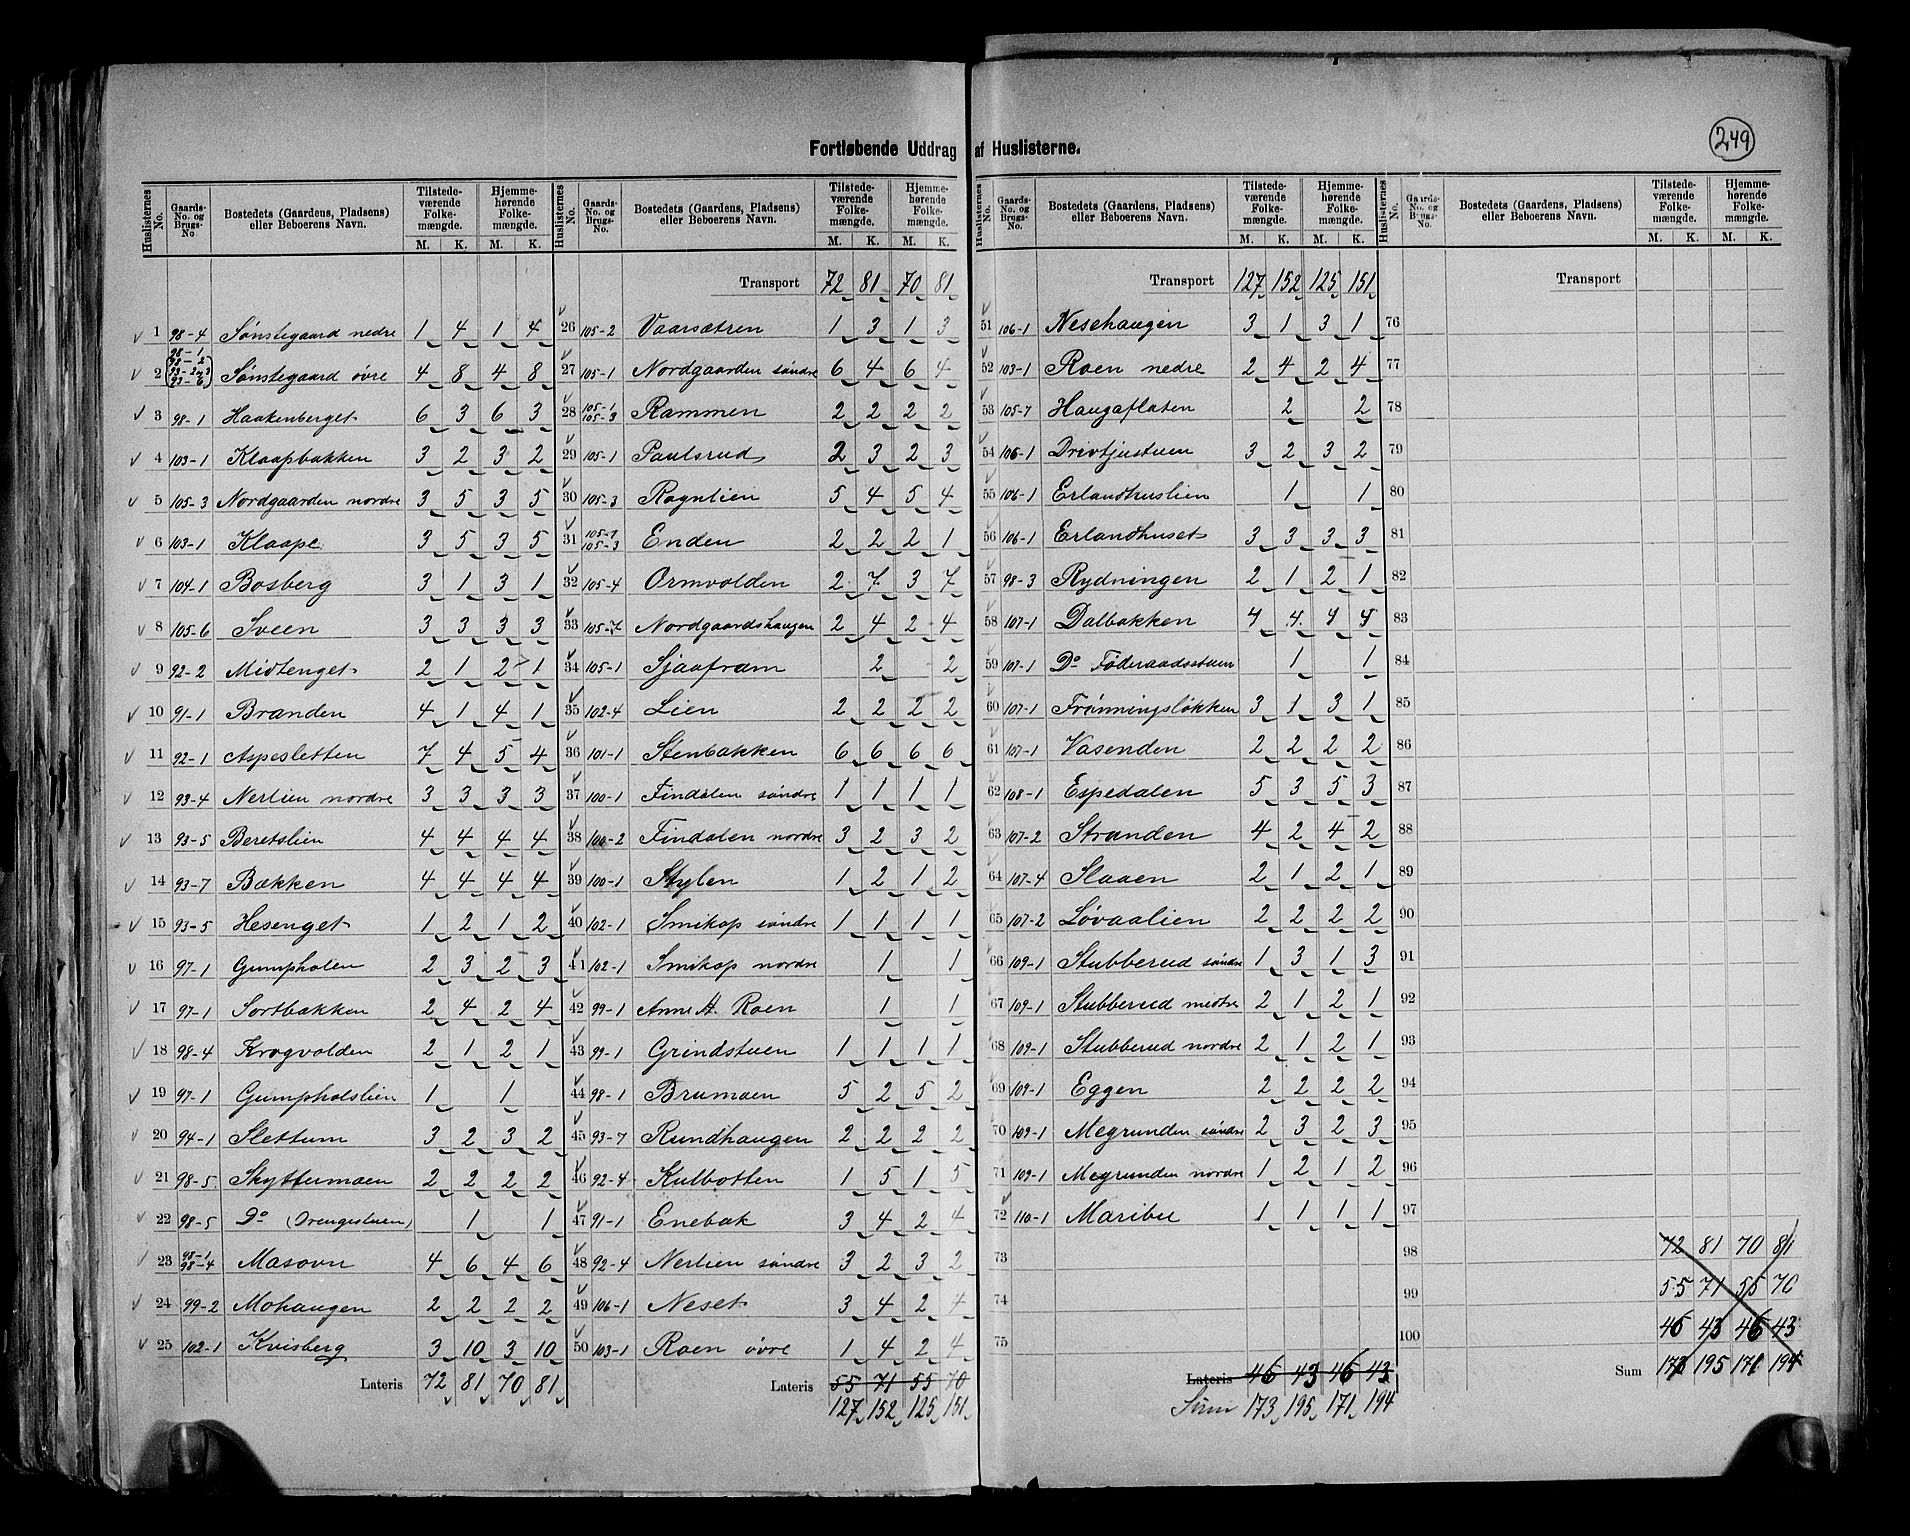 249
Fortløbende Uddrag af Huslisterne.
Huslisternes No. Gaards-No. og Brugs-No. Bostedets (Gaardens, Pladsens) eller Beboerens Navn. Tilstedeværende Folkemængde. M. K. Hjemmehørende Folkemængde. M. K.
1 98-4 Sønstegaard nedre 1 4 1 4
2 98-1 98-2 93-2 93-6 Sønstegaard øvre 4 8 4 8
3 98-1 Haakenberget 6 3 6 3
4 103-1 Klaapbakken 3 2 3 2
5 105-3 Nordgaarden nordre 3 5 3 5
6 103-1 Klaape 3 5 3 5
7 104-1 Bosberg 3 1 3 1
8 105-6 Sveen 3 3 3 3
9 92-2 Midtenget 2 1 2 1
10 91-1 Branden 4 1 4 1
11 92-1 Aspesletten 7 4 5 4
12 93-4 Nerlien nordre 3 3 3 3
13 93-5 Beretslien 4 4 4 4
14 93-7 Bækken 4 4 4 4
15 93-5 Hesenget 1 2 1 2
16 97-1 Gumpholen 2 3 2 3
17 97-1 Sortbakken 2 4 2 4
18 98-4 Krogvolden 2 1 2 1
19 97-1 Gumpholslien 1 1
20 94-1 Slettum 3 2 3 2
21 98-5 Skyttermoen 2 2 2 2
22 98-5 Do (Drengestuen) 1 1
23 98-1 98-4 Masovn 4 6 4 6
24 99-2 Mohaugen 2 2 2 2
25 102-1 Kvisberg 3 10 3 10
Lateris 72 81 70 81
Huslisternes No. Gaards-No. og Brugs-No. Bostedets (Gaardens, Pladsens) eller Beboerens Navn. Tilstedeværende Folkemængde. M. K. Hjemmehørende Folkemængde. M. K.
Transport 72 81 70 81
26 105-2 Vaarsætren 1 3 1 3
27 105-1 Nordgaarden søndre 6 4 6 4
28 105-1 105-3 Rammen 2 2 2 2
29 105-1 Paulsrud 2 3 2 3
30 105-3 Rognlien 5 4 5 4
31 105-7 105-3 Enden 2 2 2 1
32 105-4 Ormvolden 2 7 3 7
33 105-7 Nordgaardshaugen 2 4 2 4
34 105-1 Sjaafram 2 2
35 102-4 Lien 2 2 2 2
36 101-1 Stenbakken 6 6 6 6
37 100-1 Findalen søndre 1 1 1 1
38 100-2 Findalen nordre 3 2 3 2
39 100-1 Stylen 1 2 1 2
40 102-1 Smikop søndre 1 1 1 1
41 102-1 Smikop nordre 1 1
42 99-1 Anne A. Roen 1 1
43 99-1 Grindstuen 1 1 1 1
44 98-1 Brumoen 5 2 5 2
45 93-7 Rundhaugen 2 2 2 2
46 92-4 Kulbotten 1 5 1 5
47 91-1 Enebak 3 4 2 4
48 92-4 Nerlien søndre 3 2 3 2
49 106-1 Neset 3 4 2 4
50 103-1 Roen øvre 1 4 2 4
Lateris 55 71 55 70
127 152 125 151
Huslisternes No. Gaards-No. og Brugs-No. Bostedets (Gaardens, Pladsens) eller Beboerens Navn. Tilstedeværende Folkemængde. M. K. Hjemmehørende Folkemængde. M. K.
Transport 127 152 125 151
51 106-1 Nesehaugen 3 1 3 1
52 103-1 Roen nedre 2 4 2 4
53 105-7 Haugaflaten 2 2
54 106-1 Drivtjustuen 3 2 3 2
55 106-1 Erlandhuslien 1 1
56 106-1 Erlandhuset 3 3 3 3
57 98-3 Rydningen 2 1 2 1
58 107-1 Dalbakken 4 4 4 4
59 107-1 Do Føderaadsstuen 1 1
60 107-1 Frønningsløkken 3 1 3 1
61 107-1 Vasenden 2 2 2 2
62 108-1 Espedalen 5 3 5 3
63 107-2 Stranden 4 2 4 2
64 107-4 Slaaen 2 1 2 1
65 107-2 Løvaalien 2 2 2 2
66 109-1 Stubberud søndre 1 3 1 3
67 109-1 Stubberud midtre 2 1 2 1
68 109-1 Stubberud nordre 2 1 2 1
69 109-1 Eggen 2 2 2 2
70 109-1 Megrunden søndre 2 3 2 3
71 109-1 Megrunden nordre 1 2 1 2
72 110-1 Maribu 1 1 1 1
73
74
75
Lateris 46 43 46 43
Sum 173 195 171 194
Huslisternes No. Gaards-No. og Brugs-No. Bostedets (Gaardens, Pladsens) eller Beboerens Navn. Tilstedeværende Folkemængde. M. K. Hjemmehørende Folkemængde. M. K.
Transport
76
77
78
79
80
81
82
83
84
85
86
87
88
89
90
91
92
93
94
95
96
97
98 72 81 70 81
99 55 71 55 70
100 46 43 46 43
Sum 173 195 171 194